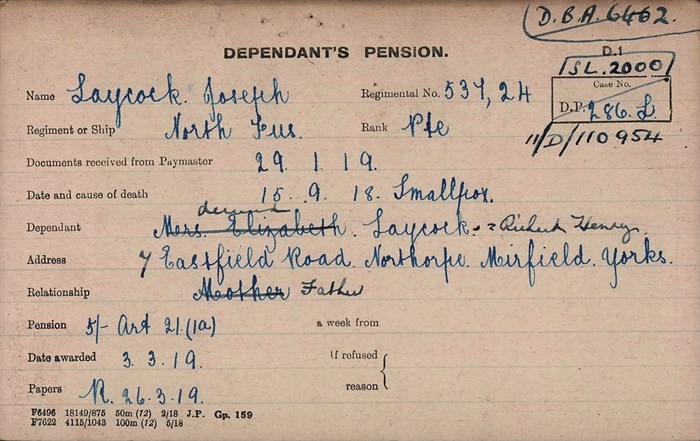 D.B.A. 6462.
DEPENDANT'S PENSION.
D.1
SL. 2000
Name Laycock. Joseph
Regimental No. 537, 24
Case No.
D.P. 286. L.
11/D/110954
Regiment or Ship North Fus.
Rank Pte
Documents received from Paymaster 29. 1. 19.
Date and cause of death 15. 9. 18. Smallpox.
deceased
Dependant Mrs. Elizabeth. Laycock. = Richard Henry.
Address 7 Eastfield Road. Northorpe. Mirfield. Yorks.
Relationship Mother Father
Pension 5/- Art 21. (1a) a week from
Date awarded 3. 3. 19. If refused
reason
Papers R. 26. 3. 19.
F6496 18149/875 50m (12) 2/18 J.P. Gp. 159
F7622 4115/1043 100m (12) 5/18